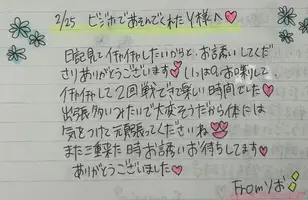 2/25 ビジホであそんでくれたY様へ♡
日記見てイチャイチャしたいからと、お誘いしてくだ
さりありがとうございます♡いっぱいお喋りして
イチャイチャして2回戦できて楽しい時間でした♡
出張多いみたいで大変そうだから体には
気をつけて元気に頑張ってくださいね
また三重来た時お誘いお待ちしてます♡
ありがとうございました♡
Fromりお